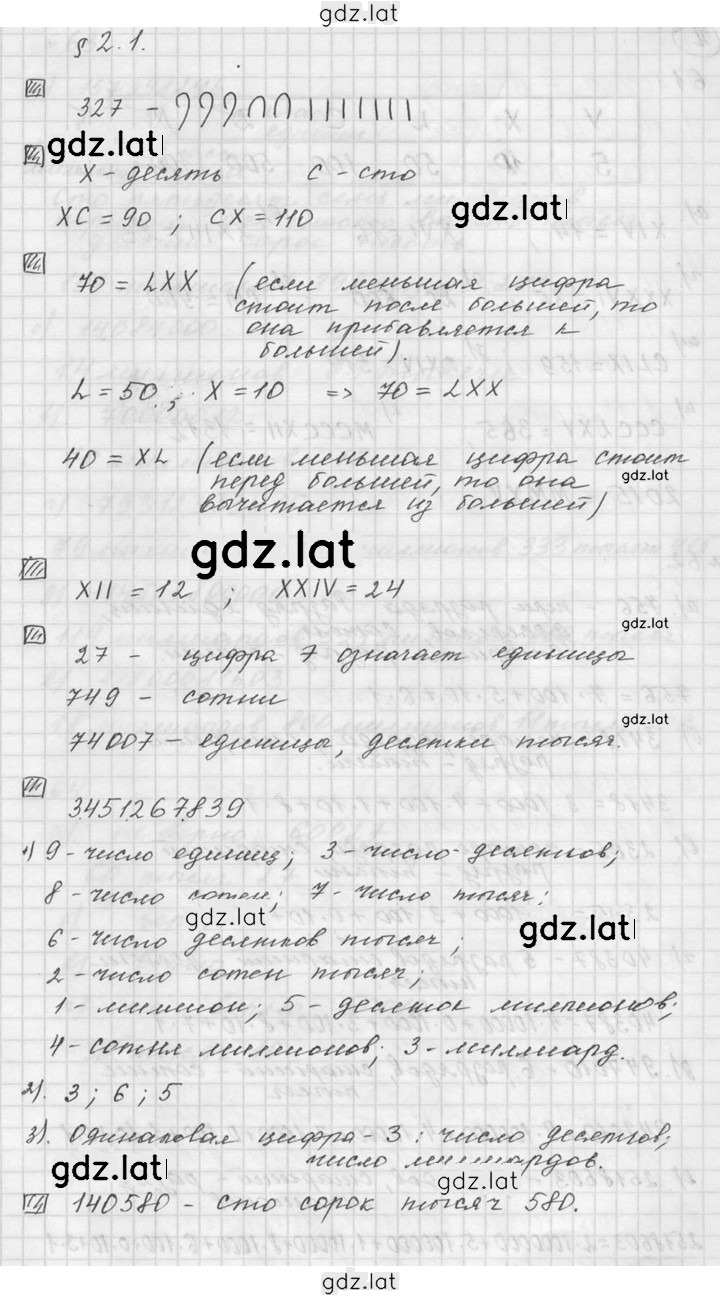 gdz.lat
§ 2.1.
327 -
gdz.lat
X - десять C - сто
gdz.lat
XC = 90 ; CX = 110
70 = LXX (если меньшая цифра
стоит после большей, то
она прибавляется к
большей).
L = 50 ; X = 10 => 70 = LXX
40 = XL (если меньшая цифра стоит
gdz.lat
перед большей, то она
вычитается из большей)
gdz.lat
XII = 12 ; XXIV = 24
gdz.lat
27 - цифра 7 означает единицы
749 - сотни
gdz.lat
74007 - единицы, десятки тысяч.
3451267839
1) 9 - число единиц; 3 - число десятков;
8 - число сотен; 7 - число тысяч;
gdz.lat
gdz.lat
6 - число десятков тысяч;
2 - число сотен тысяч;
1 - миллион; 5 - десяток миллионов;
4 - сотня миллионов; 3 - миллиард.
2). 3 ; 6 ; 5
3). Одинаковая цифра - 3 : число десятков;
число миллиардов.
gdz.lat
gdz.lat
140580 - сто сорок тысяч 580.
gdz.lat